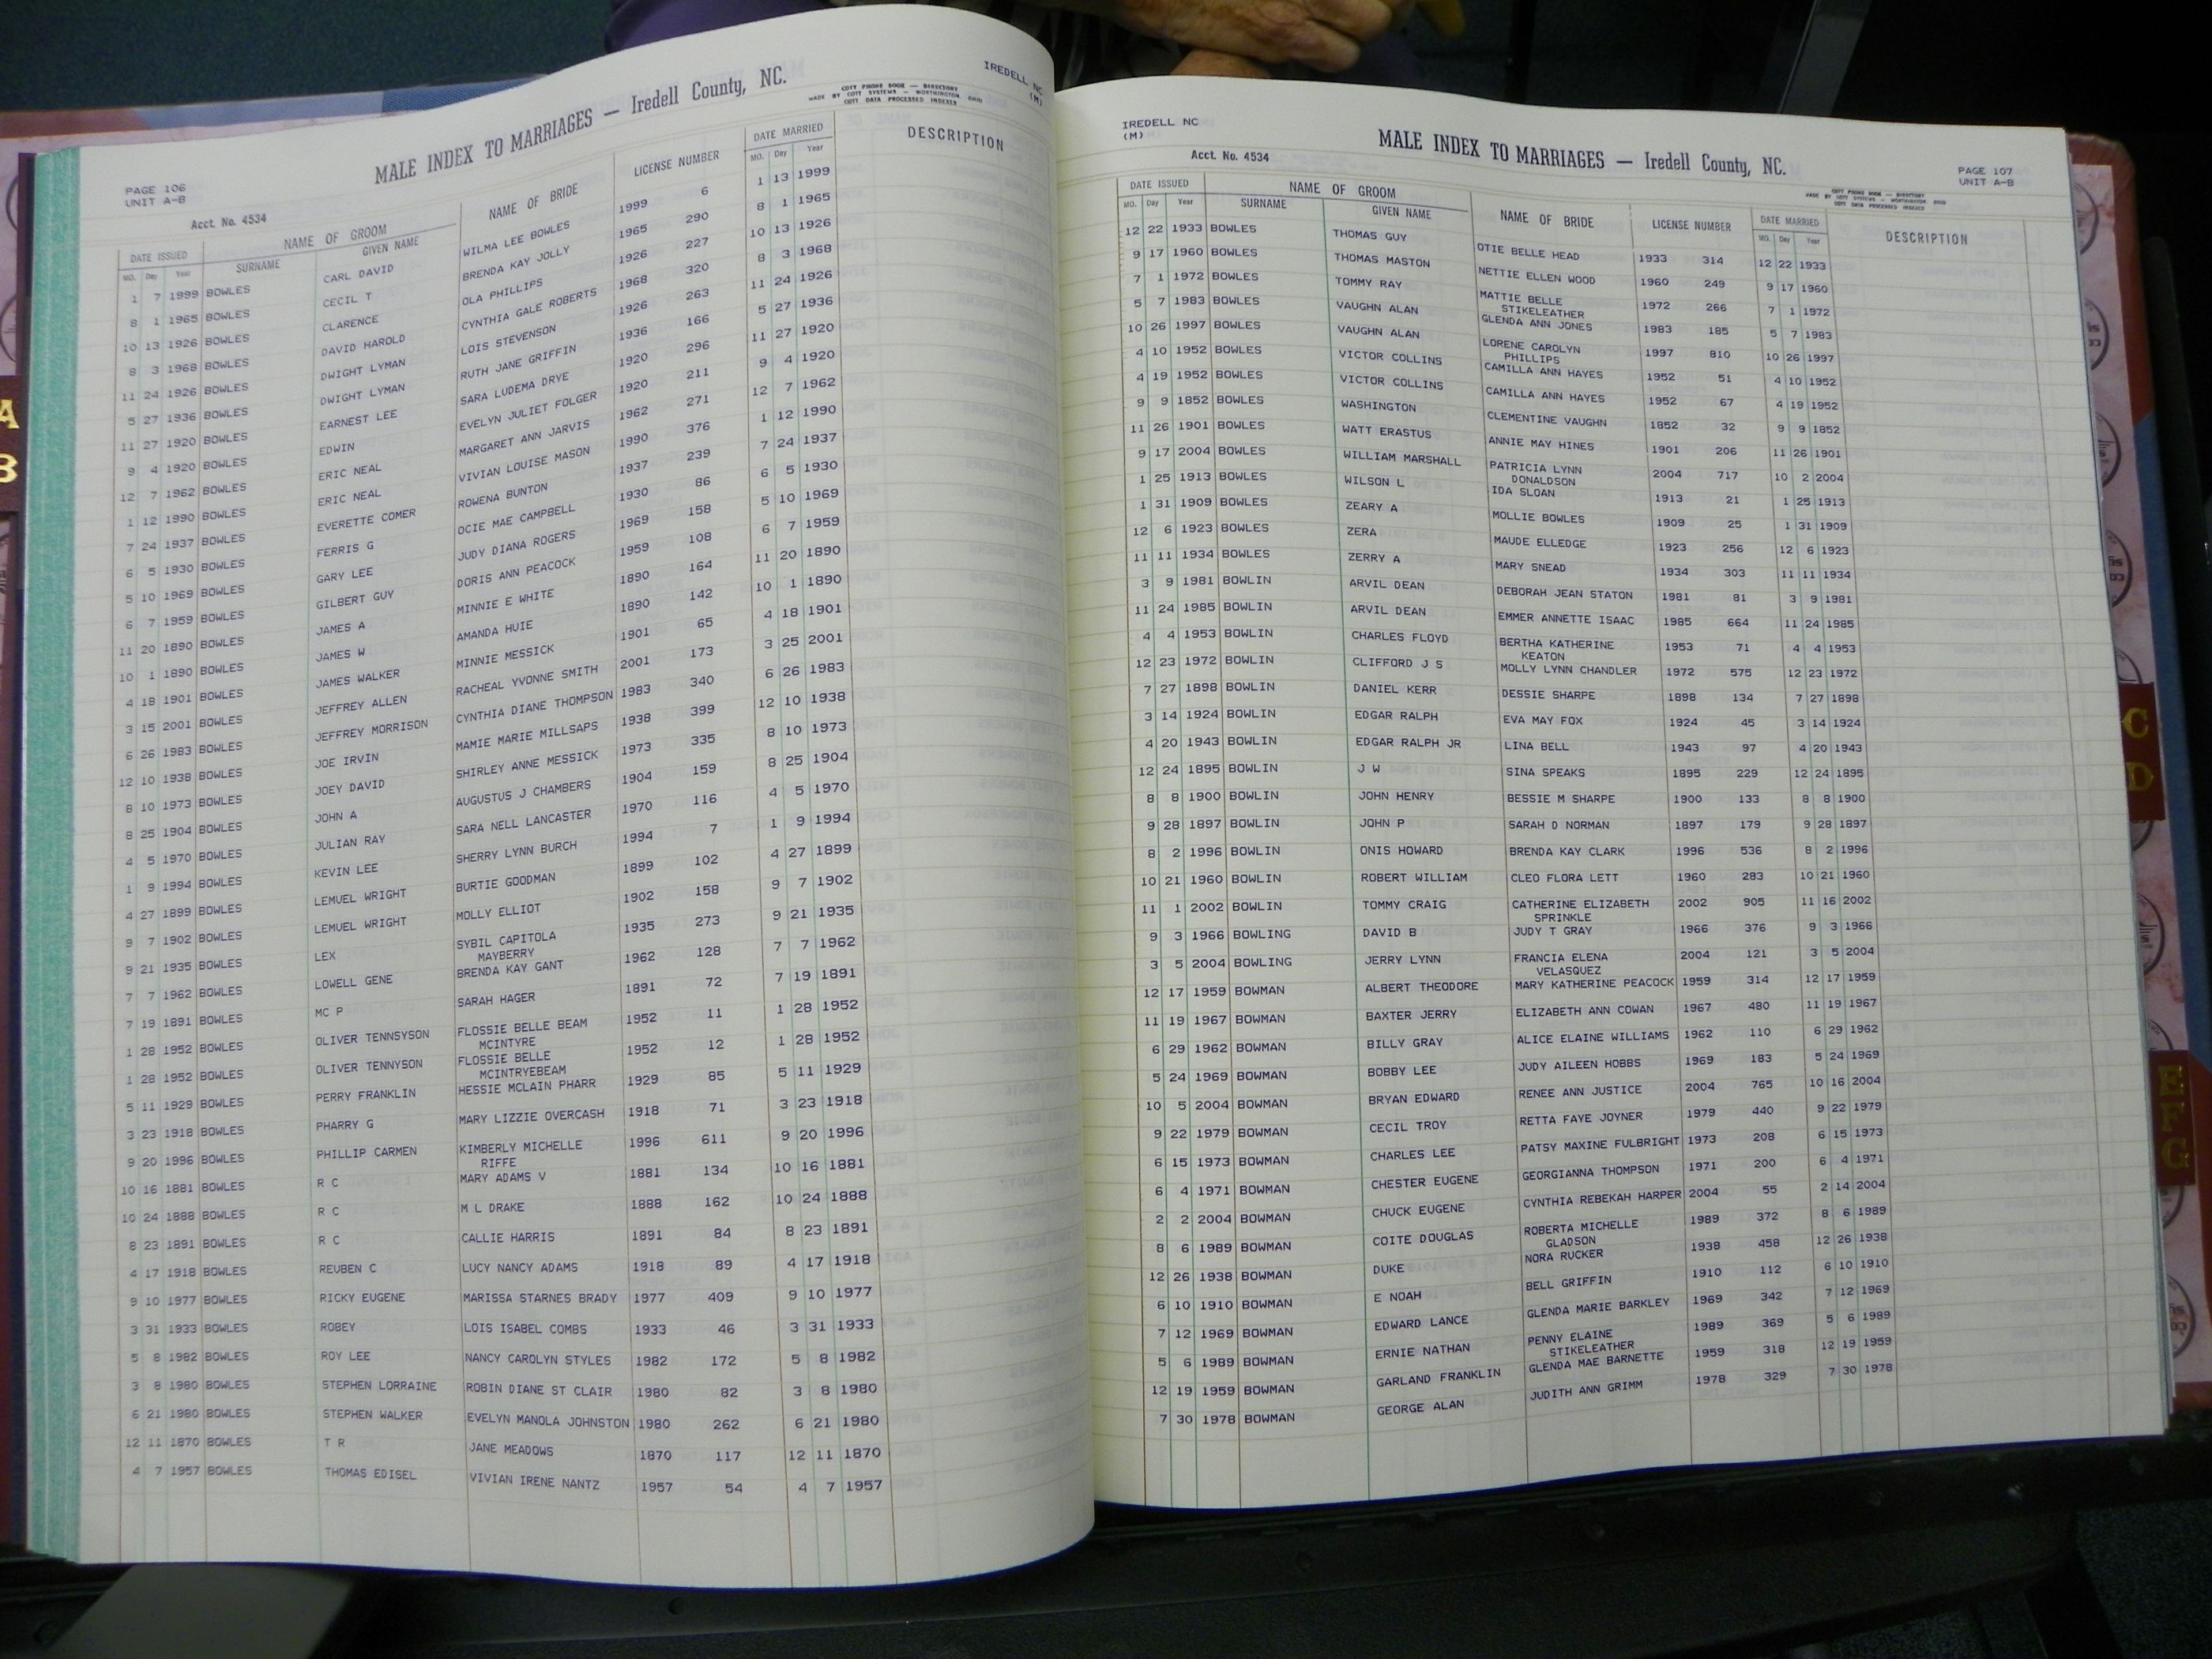 PAGE 106
UNIT A-B
Acct. No. 4534
MALE INDEX TO MARRIAGES — Iredell County, NC.
IREDELL NC
(M)
COTT PHONE BOOK — DIRECTORY
MADE BY COTT SYSTEMS — WORTHINGTON, OHIO
COTT DATA PROCESSED INDEXES
DATE ISSUED NAME OF GROOM NAME OF BRIDE LICENSE NUMBER DATE MARRIED DESCRIPTION
MO. Day Year SURNAME GIVEN NAME MO. Day Year
1 7 1999 BOWLES CARL DAVID WILMA LEE BOWLES 1999 6 1 13 1999
8 1 1965 BOWLES CECIL T BRENDA KAY JOLLY 1965 290 8 1 1965
10 13 1926 BOWLES CLARENCE OLA PHILLIPS 1926 227 10 13 1926
8 3 1968 BOWLES DAVID HAROLD CYNTHIA GALE ROBERTS 1968 320 8 3 1968
11 24 1926 BOWLES DWIGHT LYMAN LOIS STEVENSON 1926 263 11 24 1926
5 27 1936 BOWLES DWIGHT LYMAN RUTH JANE GRIFFIN 1936 166 5 27 1936
11 27 1920 BOWLES EARNEST LEE SARA LUDEMA DRYE 1920 296 11 27 1920
9 4 1920 BOWLES EDWIN EVELYN JULIET FOLGER 1920 211 9 4 1920
12 7 1962 BOWLES ERIC NEAL MARGARET ANN JARVIS 1962 271 12 7 1962
1 12 1990 BOWLES ERIC NEAL VIVIAN LOUISE MASON 1990 376 1 12 1990
7 24 1937 BOWLES EVERETTE COMER ROWENA BUNTON 1937 239 7 24 1937
6 5 1930 BOWLES FERRIS G OCIE MAE CAMPBELL 1930 86 6 5 1930
5 10 1969 BOWLES GARY LEE JUDY DIANA ROGERS 1969 158 5 10 1969
6 7 1959 BOWLES GILBERT GUY DORIS ANN PEACOCK 1959 108 6 7 1959
11 20 1890 BOWLES JAMES A MINNIE E WHITE 1890 164 11 20 1890
10 1 1890 BOWLES JAMES W AMANDA HUIE 1890 142 10 1 1890
4 18 1901 BOWLES JAMES WALKER MINNIE MESSICK 1901 65 4 18 1901
3 15 2001 BOWLES JEFFREY ALLEN RACHEAL YVONNE SMITH 2001 173 3 25 2001
6 26 1983 BOWLES JEFFREY MORRISON CYNTHIA DIANE THOMPSON 1983 340 6 26 1983
12 10 1938 BOWLES JOE IRVIN MAMIE MARIE MILLSAPS 1938 399 12 10 1938
8 10 1973 BOWLES JOEY DAVID SHIRLEY ANNE MESSICK 1973 335 8 10 1973
8 25 1904 BOWLES JOHN A AUGUSTUS J CHAMBERS 1904 159 8 25 1904
4 5 1970 BOWLES JULIAN RAY SARA NELL LANCASTER 1970 116 4 5 1970
1 9 1994 BOWLES KEVIN LEE SHERRY LYNN BURCH 1994 7 1 9 1994
4 27 1899 BOWLES LEMUEL WRIGHT BURTIE GOODMAN 1899 102 4 27 1899
9 7 1902 BOWLES LEMUEL WRIGHT MOLLY ELLIOT 1902 158 9 7 1902
9 21 1935 BOWLES LEX SYBIL CAPITOLA 1935 273 9 21 1935
MAYBERRY
7 7 1962 BOWLES LOWELL GENE BRENDA KAY GANT 1962 128 7 7 1962
7 19 1891 BOWLES MC P SARAH HAGER 1891 72 7 19 1891
1 28 1952 BOWLES OLIVER TENNSYSON FLOSSIE BELLE BEAM 1952 11 1 28 1952
MCINTYRE
1 28 1952 BOWLES OLIVER TENNYSON FLOSSIE BELLE 1952 12 1 28 1952
MCINTRYEBEAM
5 11 1929 BOWLES PERRY FRANKLIN HESSIE MCLAIN PHARR 1929 85 5 11 1929
3 23 1918 BOWLES PHARRY G MARY LIZZIE OVERCASH 1918 71 3 23 1918
9 20 1996 BOWLES PHILLIP CARMEN KIMBERLY MICHELLE 1996 611 9 20 1996
RIFFE
10 16 1881 BOWLES R C MARY ADAMS V 1881 134 10 16 1881
10 24 1888 BOWLES R C M L DRAKE 1888 162 10 24 1888
8 23 1891 BOWLES R C CALLIE HARRIS 1891 84 8 23 1891
4 17 1918 BOWLES REUBEN C LUCY NANCY ADAMS 1918 89 4 17 1918
9 10 1977 BOWLES RICKY EUGENE MARISSA STARNES BRADY 1977 409 9 10 1977
3 31 1933 BOWLES ROBEY LOIS ISABEL COMBS 1933 46 3 31 1933
5 8 1982 BOWLES ROY LEE NANCY CAROLYN STYLES 1982 172 5 8 1982
3 8 1980 BOWLES STEPHEN LORRAINE ROBIN DIANE ST CLAIR 1980 82 3 8 1980
6 21 1980 BOWLES STEPHEN WALKER EVELYN MANOLA JOHNSTON 1980 262 6 21 1980
12 11 1870 BOWLES T R JANE MEADOWS 1870 117 12 11 1870
4 7 1957 BOWLES THOMAS EDISEL VIVIAN IRENE NANTZ 1957 54 4 7 1957
IREDELL NC
(M)
Acct. No. 4534
MALE INDEX TO MARRIAGES — Iredell County, NC.
PAGE 107
UNIT A-B
COTT PHONE BOOK — DIRECTORY
MADE BY COTT SYSTEMS — WORTHINGTON, OHIO
COTT DATA PROCESSED INDEXES
DATE ISSUED NAME OF GROOM NAME OF BRIDE LICENSE NUMBER DATE MARRIED DESCRIPTION
MO. Day Year SURNAME GIVEN NAME MO. Day Year
12 22 1933 BOWLES THOMAS GUY OTIE BELLE HEAD 1933 314 12 22 1933
9 17 1960 BOWLES THOMAS MASTON NETTIE ELLEN WOOD 1960 249 9 17 1960
7 1 1972 BOWLES TOMMY RAY MATTIE BELLE 1972 266 7 1 1972
STIKELEATHER
5 7 1983 BOWLES VAUGHN ALAN GLENDA ANN JONES 1983 185 5 7 1983
10 26 1997 BOWLES VAUGHN ALAN LORENE CAROLYN 1997 810 10 26 1997
PHILLIPS
4 10 1952 BOWLES VICTOR COLLINS CAMILLA ANN HAYES 1952 51 4 10 1952
4 19 1952 BOWLES VICTOR COLLINS CAMILLA ANN HAYES 1952 67 4 19 1952
9 9 1852 BOWLES WASHINGTON CLEMENTINE VAUGHN 1852 32 9 9 1852
11 26 1901 BOWLES WATT ERASTUS ANNIE MAY HINES 1901 206 11 26 1901
9 17 2004 BOWLES WILLIAM MARSHALL PATRICIA LYNN 2004 717 10 2 2004
DONALDSON
1 25 1913 BOWLES WILSON L IDA SLOAN 1913 21 1 25 1913
1 31 1909 BOWLES ZEARY A MOLLIE BOWLES 1909 25 1 31 1909
12 6 1923 BOWLES ZERA MAUDE ELLEDGE 1923 256 12 6 1923
11 11 1934 BOWLES ZERRY A MARY SNEAD 1934 303 11 11 1934
3 9 1981 BOWLIN ARVIL DEAN DEBORAH JEAN STATON 1981 81 3 9 1981
11 24 1985 BOWLIN ARVIL DEAN EMMER ANNETTE ISAAC 1985 664 11 24 1985
4 4 1953 BOWLIN CHARLES FLOYD BERTHA KATHERINE 1953 71 4 4 1953
KEATON
12 23 1972 BOWLIN CLIFFORD J S MOLLY LYNN CHANDLER 1972 575 12 23 1972
7 27 1898 BOWLIN DANIEL KERR DESSIE SHARPE 1898 134 7 27 1898
3 14 1924 BOWLIN EDGAR RALPH EVA MAY FOX 1924 45 3 14 1924
4 20 1943 BOWLIN EDGAR RALPH JR LINA BELL 1943 97 4 20 1943
12 24 1895 BOWLIN J W SINA SPEAKS 1895 229 12 24 1895
8 8 1900 BOWLIN JOHN HENRY BESSIE M SHARPE 1900 133 8 8 1900
9 28 1897 BOWLIN JOHN P SARAH D NORMAN 1897 179 9 28 1897
8 2 1996 BOWLIN ONIS HOWARD BRENDA KAY CLARK 1996 536 8 2 1996
10 21 1960 BOWLIN ROBERT WILLIAM CLEO FLORA LETT 1960 283 10 21 1960
11 1 2002 BOWLIN TOMMY CRAIG CATHERINE ELIZABETH 2002 905 11 16 2002
SPRINKLE
9 3 1966 BOWLING DAVID B JUDY T GRAY 1966 376 9 3 1966
3 5 2004 BOWLING JERRY LYNN FRANCIA ELENA 2004 121 3 5 2004
VELASQUEZ
12 17 1959 BOWMAN ALBERT THEODORE MARY KATHERINE PEACOCK 1959 314 12 17 1959
11 19 1967 BOWMAN BAXTER JERRY ELIZABETH ANN COWAN 1967 480 11 19 1967
6 29 1962 BOWMAN BILLY GRAY ALICE ELAINE WILLIAMS 1962 110 6 29 1962
5 24 1969 BOWMAN BOBBY LEE JUDY AILEEN HOBBS 1969 183 5 24 1969
10 5 2004 BOWMAN BRYAN EDWARD RENEE ANN JUSTICE 2004 765 10 16 2004
9 22 1979 BOWMAN CECIL TROY RETTA FAYE JOYNER 1979 440 9 22 1979
6 15 1973 BOWMAN CHARLES LEE PATSY MAXINE FULBRIGHT 1973 208 6 15 1973
6 4 1971 BOWMAN CHESTER EUGENE GEORGIANNA THOMPSON 1971 200 6 4 1971
2 2 2004 BOWMAN CHUCK EUGENE CYNTHIA REBEKAH HARPER 2004 55 2 14 2004
8 6 1989 BOWMAN COITE DOUGLAS ROBERTA MICHELLE 1989 372 8 6 1989
GLADSON
12 26 1938 BOWMAN DUKE NORA RUCKER 1938 458 12 26 1938
6 10 1910 BOWMAN E NOAH BELL GRIFFIN 1910 112 6 10 1910
7 12 1969 BOWMAN EDWARD LANCE GLENDA MARIE BARKLEY 1969 342 7 12 1969
5 6 1989 BOWMAN ERNIE NATHAN PENNY ELAINE 1989 369 5 6 1989
STIKELEATHER
12 19 1959 BOWMAN GARLAND FRANKLIN GLENDA MAE BARNETTE 1959 318 12 19 1959
7 30 1978 BOWMAN GEORGE ALAN JUDITH ANN GRIMM 1978 329 7 30 1978
A
B
C
D
E
F
G